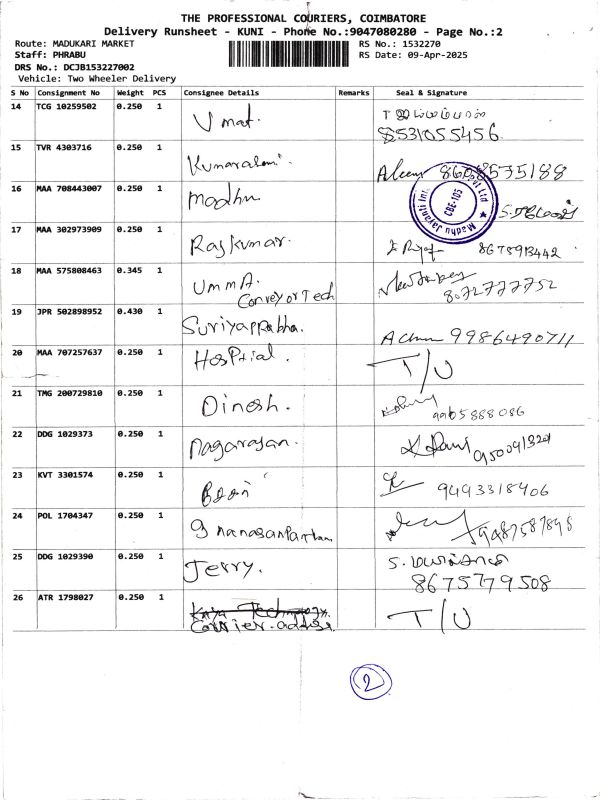 THE PROFESSIONAL COURIERS, COIMBATORE
Delivery Runsheet - KUNI - Phone No.:9047080280 - Page No.:2
Route: MADUKARI MARKET
RS No.: 1532270
Staff: PHRABU
RS Date: 09-Apr-2025
DRS No.: DCJB153227002
Vehicle: Two Wheeler Delivery
S No Consignment No Weight PCS Consignee Details Remarks Seal & Signature
14 TCG 10259502 0.250 1
8531055456
15 TVR 4303716 0.250 1
8608535188
16 MAA 708443007 0.250 1 Madhu
Madhu Jayanti Int. Pvt Ltd
CBE-105
17 MAA 302973909 0.250 1 Rajkumar.
18 MAA 575808463 0.345 1 UMMA.
Conveyor Tech 8072777752
19 JPR 502898952 0.430 1 Suriyaprabha.
9986490711
20 MAA 707257637 0.250 1 Hosptial. T/U
21 TMG 200729810 0.250 1 Dinesh.
9965888086
22 DDG 1029373 0.250 1 Nagarajan.
23 KVT 3301574 0.250 1
9493318406
24 POL 1704347 0.250 1
25 DDG 1029390 0.250 1 Jerry.
8675779508
26 ATR 1798027 0.250 1 T/U
2